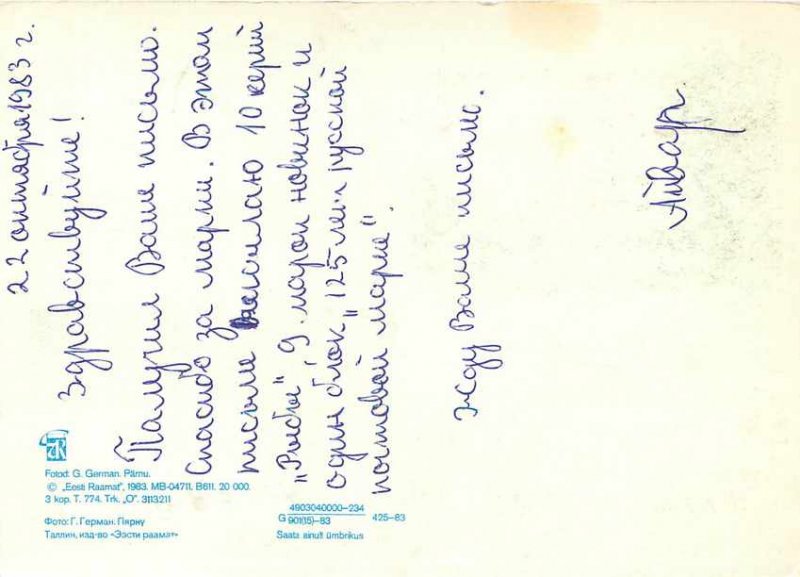 22 октября 1983 г.
Здравствуйте!
Палучил Ваше письмо.
Спасибо за марки. В этом
письме высилаю 10 керий
„Рыбы", 9. марок новинок и
один блок „125 лет русской
почтовой марке".
жду Ваше письмо.
Айвар.
Fotod: G. German. Pärnu.
© „Eesti Raamat", 1983. MB-04711. B611. 20 000.
3 kop. T. 774. Trk. „O". 3113211
Фото: Г. Герман. Пярну
Таллин, изд-во «Ээсти раамат»
G 4903040000—234
901(15)—83
425—83
Saata ainult ümbrikus